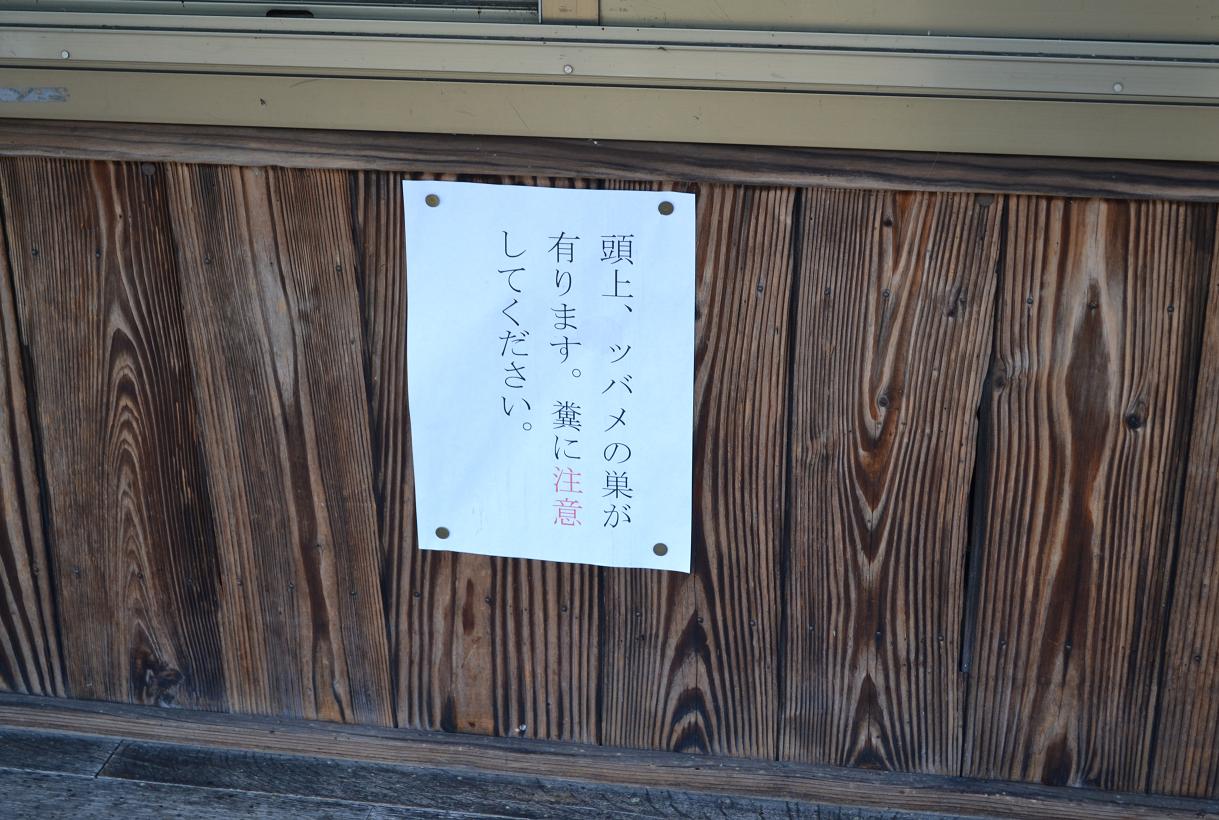 頭上、ツバメの巣が
有ります。糞に注意
してください。